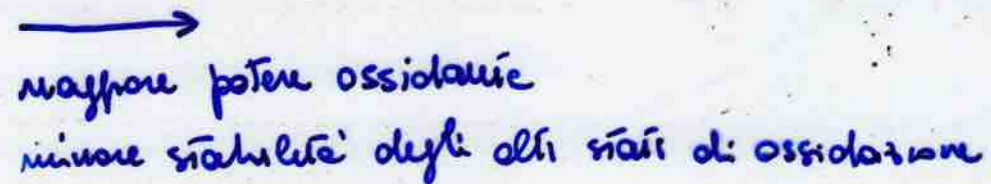 maggiore potere ossidante
minore stabilità degli alti stati di ossidazione